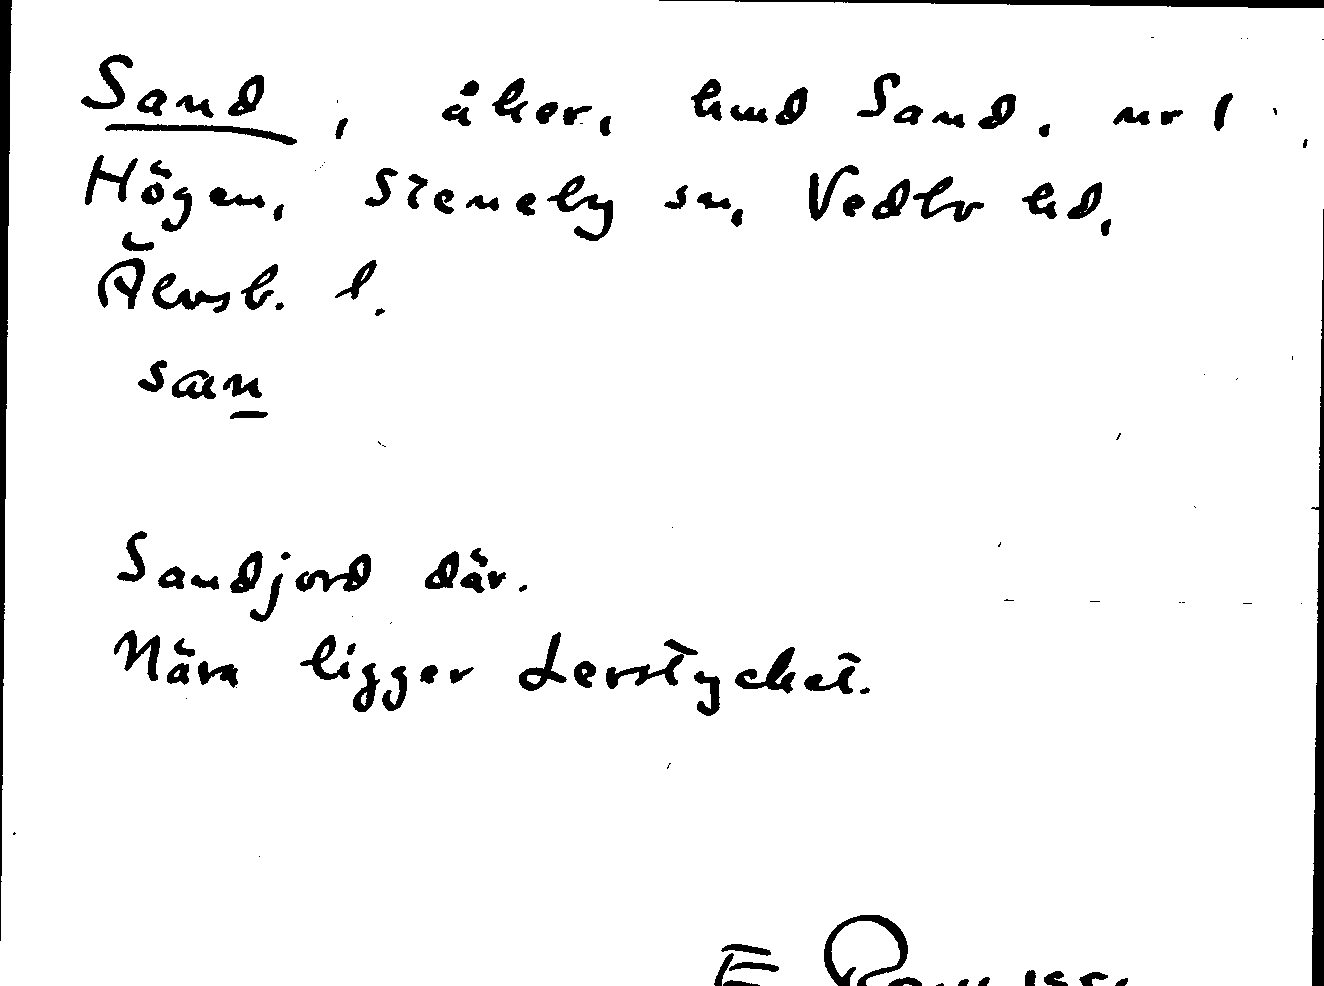 Sand, åker, hmd Sand, nr 1
Högen, Steneby sn, Vedbo hd,
Älvsb. l.
san
Sandjord där.
Nära ligger Lerstycket.
E